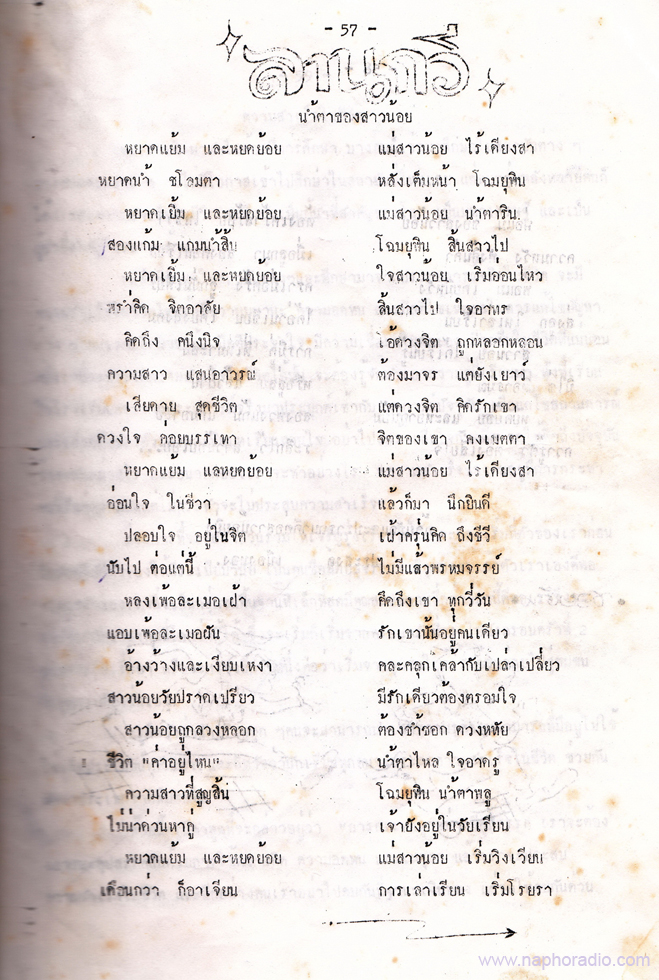 - 57 -
ลานกวี
น้ำตาของสาวน้อย
หยาดแย้ม และหยดย้อย แม่สาวน้อย ไร้เดียงสา
หยาดน้ำ ชโลมตา หลั่งเต็มหน้า โฉมยุพิน
หยาดเยิ้ม และหยดย้อย แม่สาวน้อย น้ำตาริน
สองแก้ม แกมน้ำสิ้น โฉมยุพิน สิ้นสาวไป
หยาดเยิ้ม และหยดย้อย ใจสาวน้อย เริ่มอ่อนไหว
พร่ำคิด จิตอาลัย สิ้นสาวไป ใจอาทร
คิดถึง คนึงนิจ โอ้ดวงจิต ถูกหลอกหลอน
ความสาว แสนอาวรณ์ ต้องมาจร แต่ยังเยาว์
เสียดาย สุดชีวิต แต่ดวงจิต คิดรักเขา
ดวงใจ ค่อยบรรเทา จิตของเขา คงเมตตา
หยาดแย้ม แลหยดย้อย แม่สาวน้อย ไร้เดียงสา
อ่อนใจ ในชีวา แล้วก็มา นึกยินดี
ปลอบใจ อยู่ในจิต เฝ้าครุ่นคิด ถึงชีวี
นับไป ต่อแต่นี้ ไม่มีแล้วพรหมจรรย์
หลงเพ้อละเมอเฝ้า คิดถึงเขา ทุกวี่วัน
แอบเพ้อละเมอฝัน รักเขานั้นอยู่คนเดียว
อ้างว้างและเงียบเหงา คละคลุกเคล้ากับเปล่าเปลี่ยว
สาวน้อยวัยปราดเปรียว มีรักเดียวต้องตรอมใจ
สาวน้อยถูกลวงหลอก ต้องช้ำชอก ดวงหทัย
ชีวิต "ค่าอยู่ไหน" น้ำตาไหล ใจอาดูร
ความสาวที่สูญสิ้น โฉมยุพิน น้ำตาพลู
ไม่น่าด่วนหาคู่ เจ้ายังอยู่ในวัยเรียน
หยาดแย้ม และหยดย้อย แม่สาวน้อย เริ่มวิงเวียน
เดือนกว่า ก็อาเจียน การเล่าเรียน เริ่มโรยรา
www.naphoradio.com